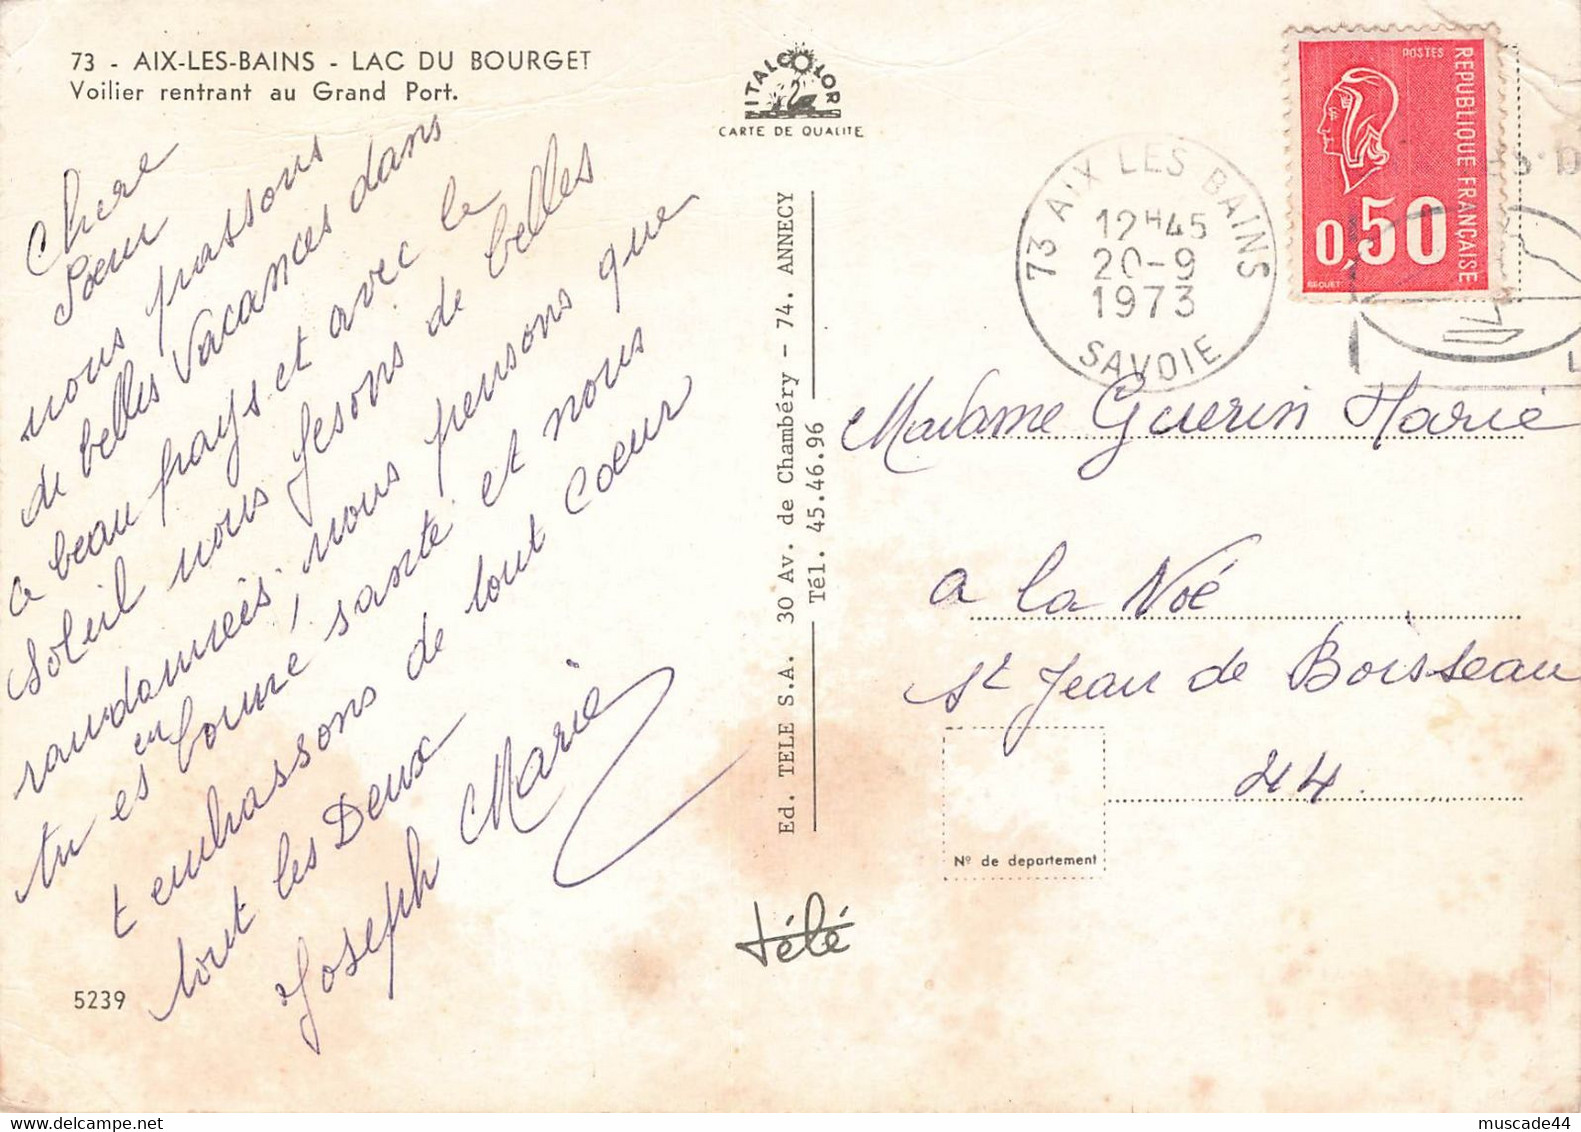 73 - AIX-LES-BAINS - LAC DU BOURGET
Voilier rentrant au Grand Port.
Chere
Sœur
nous passons
de belles Vacances dans
ce beau pays et avec le
soleil nous fesons de belles
randonneés, nous pensons que
tu es en bonne santé et nous
t embrassons de tout Coeur
tout les Deux
Joseph Marie
5239
ITALCOLOR
CARTE DE QUALITE
Ed. TELE S.A. 30 Av. de Chambéry - 74. ANNECY
Tél. 45.46.96
télé
73 AIX LES BAINS
12H45
20-9
1973
SAVOIE
POSTES
REPUBLIQUE FRANÇAISE
0,50
BEQUET
Madame Guerin Marie
a la Noé
St Jean de Boisseau
44
Nº de departement
muscade44